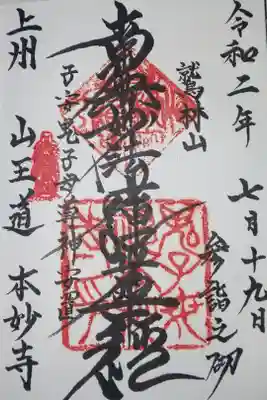 令和二年 七月十九日
参詣之砌
鷲林山
南無妙法蓮華経
子安鬼子母善神安置
上州 山王道 本妙寺